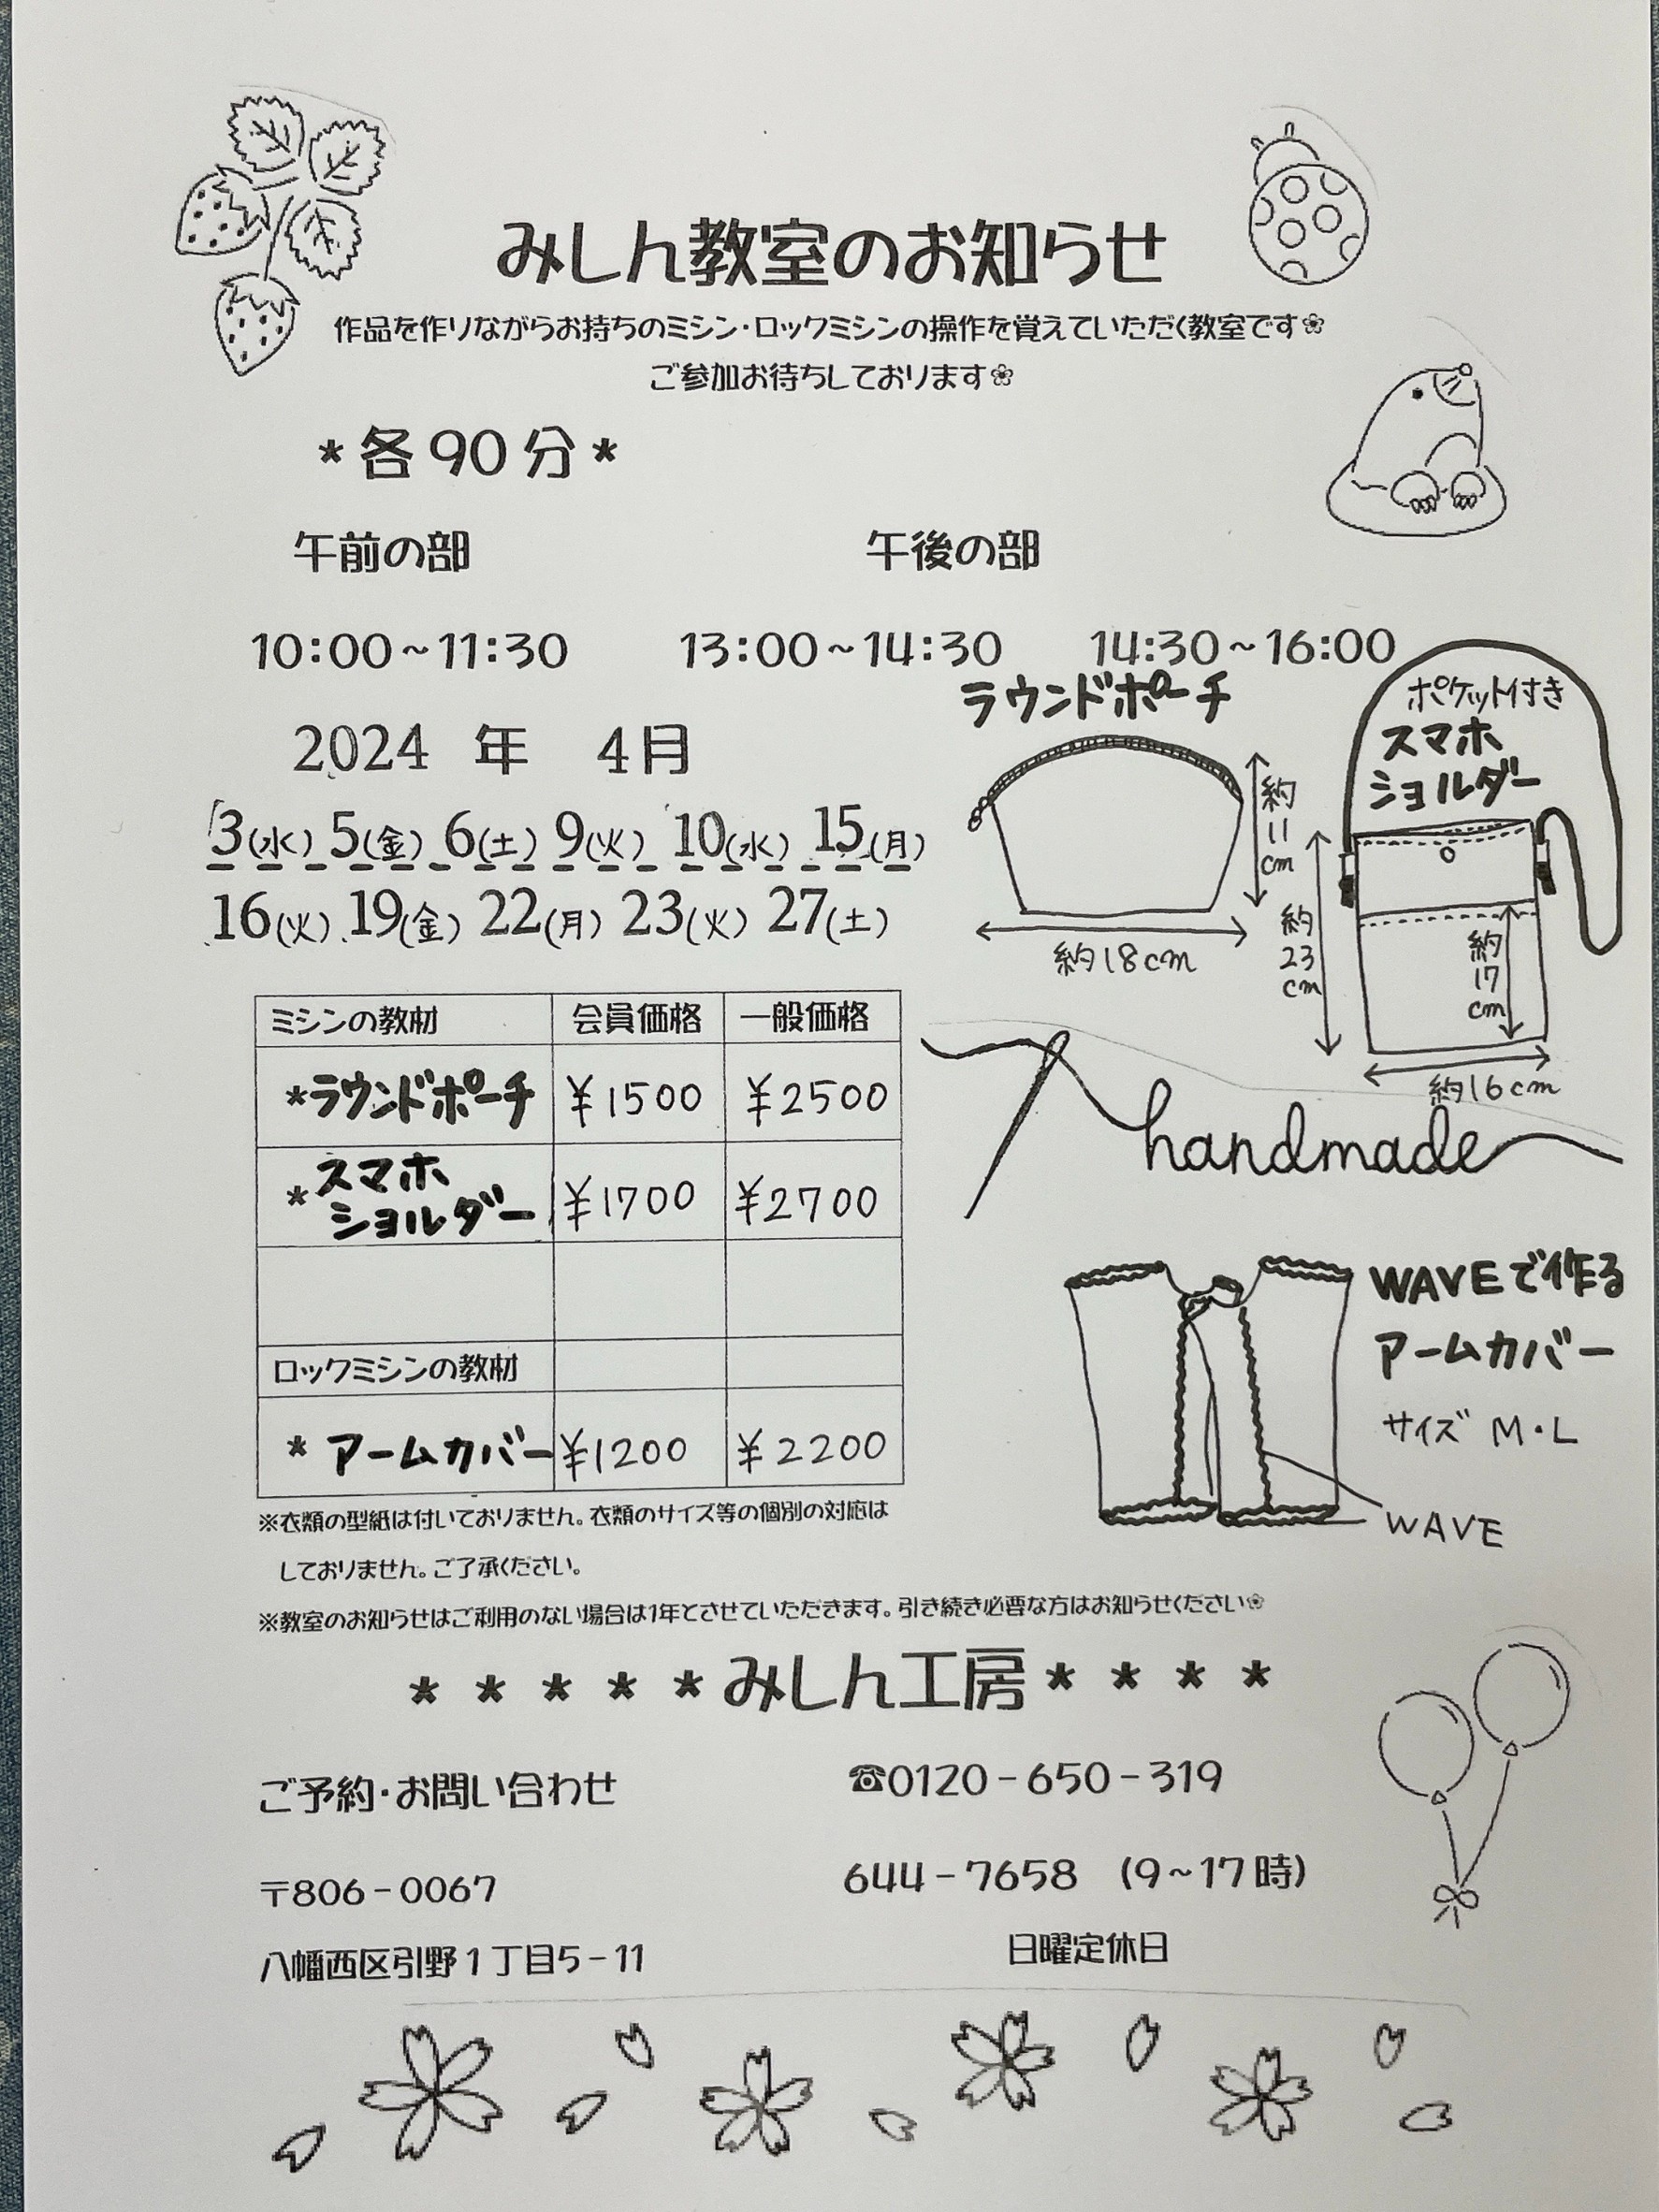 みしん教室のお知らせ
作品を作りながらお持ちのミシン・ロックミシンの操作を覚えていただく教室です❀
ご参加お待ちしております❀
*各90分*
午前の部 午後の部
10:00~11:30 13:00~14:30 14:30~16:00
ラウンドポーチ
約11cm
約18cm
ポケット付き
スマホ
ショルダー
約23cm
約17cm
約16cm
2024 年 4月
3(水) 5(金) 6(土) 9(火) 10(水) 15(月)
16(火) 19(金) 22(月) 23(火) 27(土)
ミシンの教材 会員価格 一般価格
*ラウンドポーチ ¥1500 ¥2500
*スマホ
ショルダー ¥1700 ¥2700
ロックミシンの教材
* アームカバー ¥1200 ¥2200
handmade
WAVEで作る
アームカバー
サイズ M・L
WAVE
※衣類の型紙は付いておりません。衣類のサイズ等の個別の対応は
しておりません。ご了承ください。
※教室のお知らせはご利用のない場合は1年とさせていただきます。引き続き必要な方はお知らせください❀
* * * * *みしん工房* * * *
ご予約・お問い合わせ ☎0120-650-319
〒806-0067 644-7658 (9~17時)
八幡西区引野1丁目5-11 日曜定休日